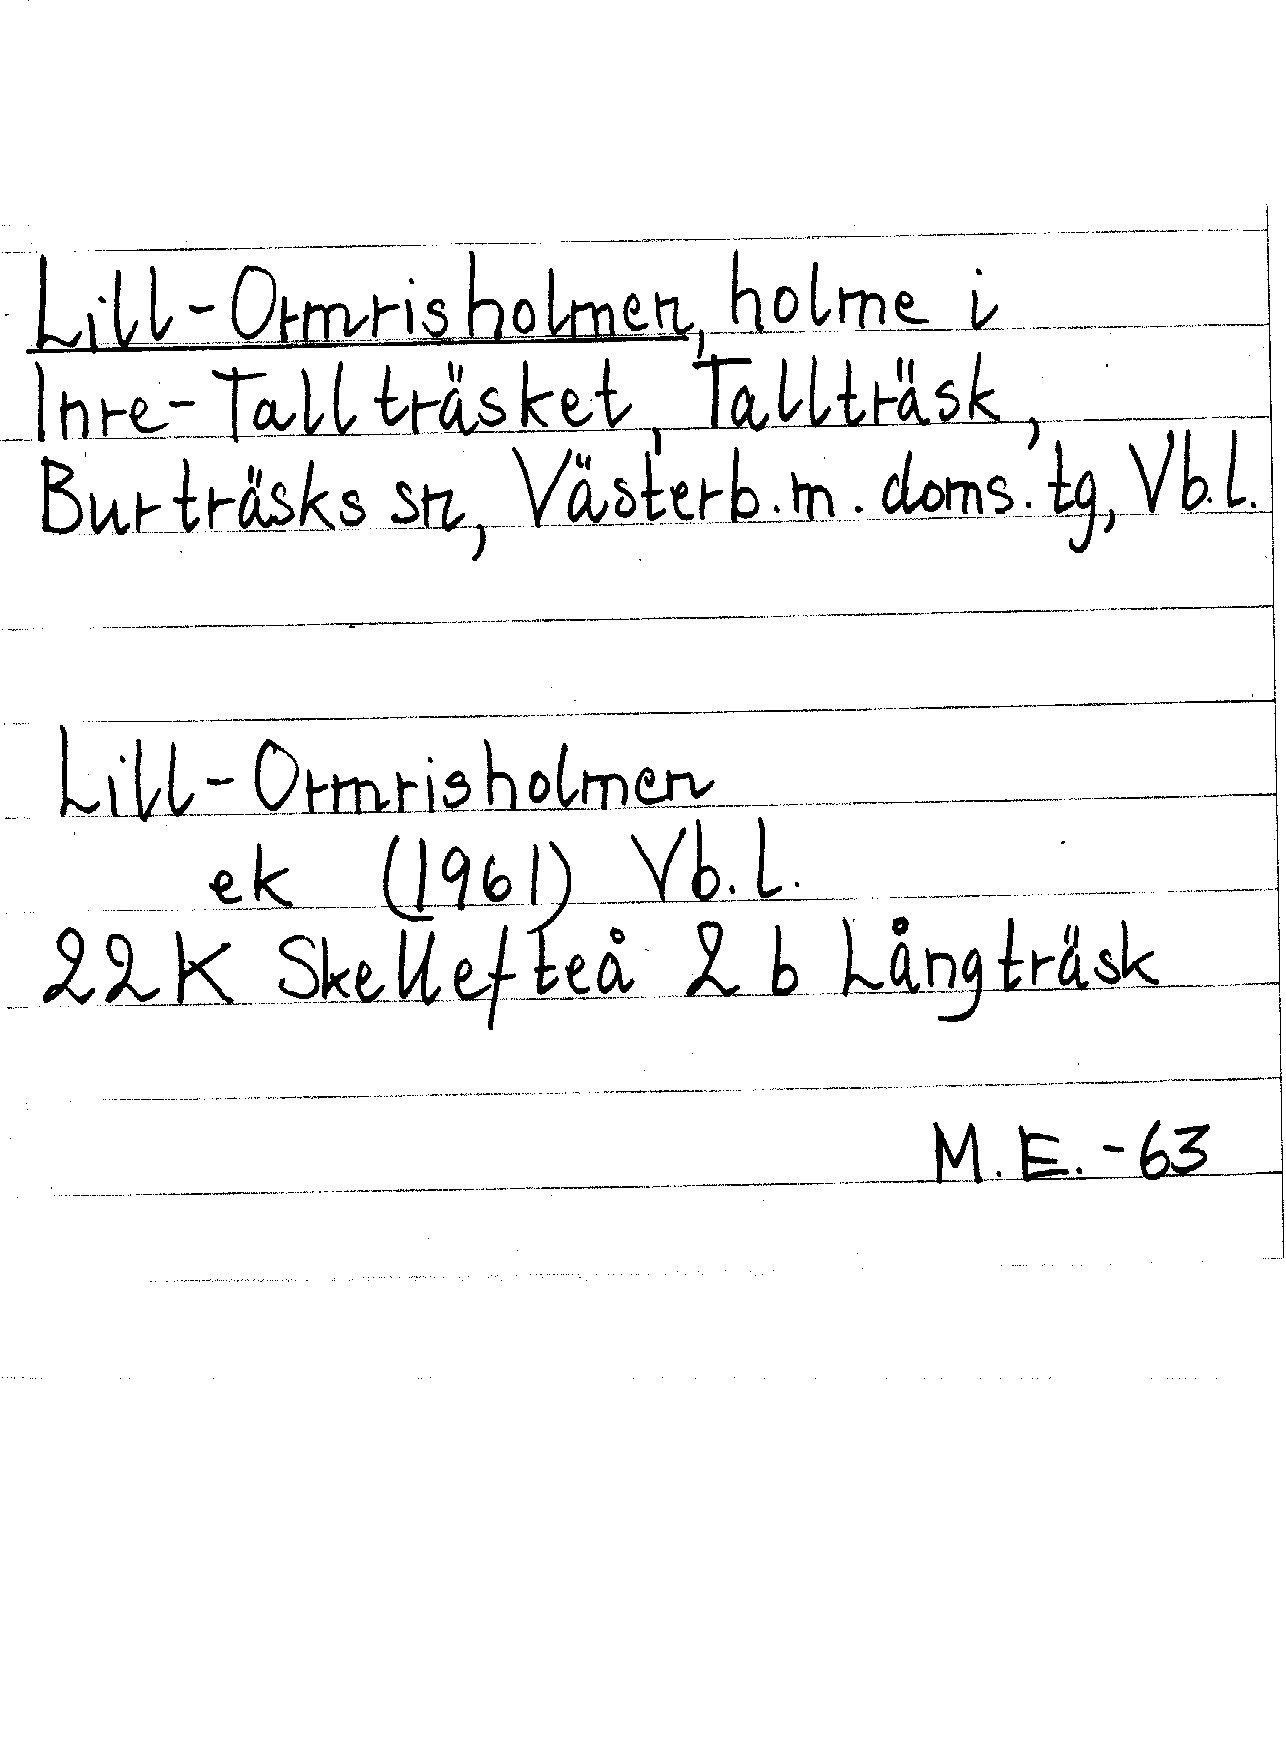 Lill-Ormrisholmen, holme i
Inre-Tallträsket, Tallträsk,
Burträsks sn, Västerb.m.doms.tg, Vb.l.
Lill-Ormrisholmen
ek (1961) Vb.l.
22K Skellefteå 2 b Långträsk
M.E.-63